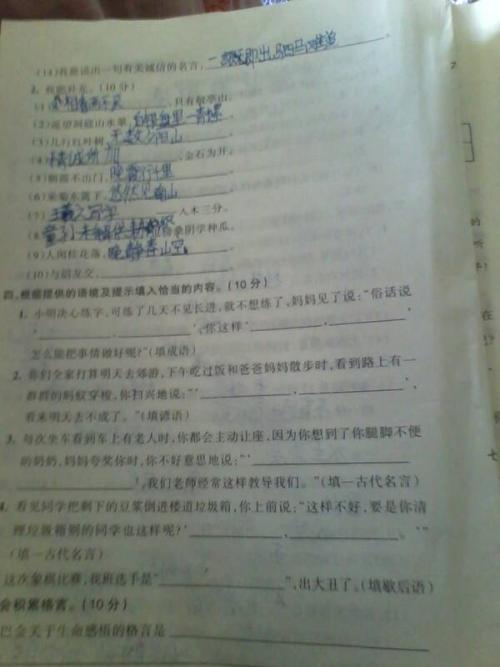 (14)我能说出一句有关诚信的名言,一言既出,驷马难追。
2. 我能补充。(10分)
(1)相看两不厌,只有敬亭山。
(2)遥望洞庭山水翠,白银盘里一青螺。
(3)几行红叶树,无数夕阳山。
(4)精诚所加,金石为开。
(5)朝霞不出门,晚霞行千里。
(6)采菊东篱下,悠然见南山。
(7)入木三分。
(8)童孙未解供耕织,也傍桑阴学种瓜。
(9)人闲桂花落,晚静春山空。
(10)与朋友交,
四、根据提供的语境及提示填入恰当的内容。(10分)
1. 小明决心练字,可练了几天不见长进,就不想练了,妈妈见了说:“俗话说
‘ , ’,你这样‘ , ’,
怎么能把事情做好呢?”(填成语)
2. 你们全家打算明天去郊游,下午吃过饭和爸爸妈妈散步时,看到路上有一
群群的蚂蚁穿梭,你扫兴地说:“‘ , ’,
看来明天去不成了。”(填谚语)
3. 每次坐车看到车上有老人时,你都会主动让座,因为你想到了你腿脚不便
的奶奶,妈妈夸奖你时,你不好意思地说:“‘
’,我们老师经常这样教导我们。”(填一古代名言)
4. 看见同学把剩下的豆浆倒进楼道垃圾箱,你上前说:“这样不好,要是你清
理垃圾箱别的同学也这样呢?‘ , 。’”
(填一古代名言)
这次象棋比赛,我班选手是“ ”,出大丑了。(填歇后语)
会积累格言。(10分)
巴金关于生命感悟的格言是